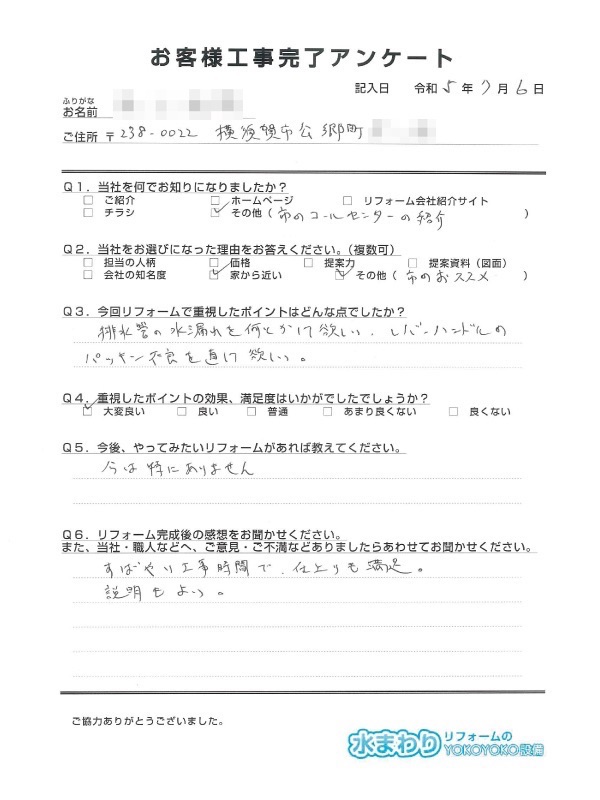 お客様工事完了アンケート
記入日 令和 5 年 7 月 6 日
ふりがな
お名前
ご住所 〒 238-0022 横須賀市公郷町
Q1. 当社を何でお知りになりましたか?
□ ご紹介 □ ホームページ □ リフォーム会社紹介サイト
□ チラシ ☑ その他 ( 市のコールセンターの紹介 )
Q2. 当社をお選びになった理由をお答えください。(複数可)
□ 担当の人柄 □ 価格 □ 提案力 □ 提案資料(図面)
□ 会社の知名度 ☑ 家から近い ☑ その他 ( 市のおススメ )
Q3. 今回リフォームで重視したポイントはどんな点でしたか?
排水管の水漏れを何とかして欲しい、レバーハンドルの
パッキン不良を直して欲しい。
Q4. 重視したポイントの効果、満足度はいかがでしたでしょうか?
☑ 大変良い □ 良い □ 普通 □ あまり良くない □ 良くない
Q5. 今後、やってみたいリフォームがあれば教えてください。
今は特にありません
Q6. リフォーム完成後の感想をお聞かせください。
また、当社・職人などへ、ご意見・ご不満などありましたらあわせてお聞かせください。
すばやい工事時間で、仕上りも満足。
説明もよい。
ご協力ありがとうございました。
水まわりリフォームのYOKOYOKO設備